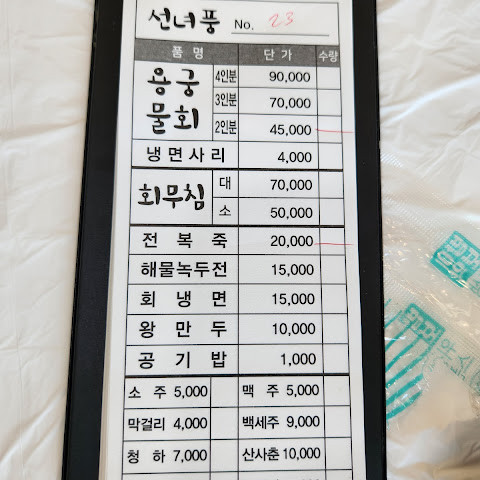 선녀풍 No. 23
품 명 단 가 수량
용궁물회 4인분 90,000
3인분 70,000
2인분 45,000
냉면사리 4,000
회무침 대 70,000
소 50,000
전복죽 20,000
해물녹두전 15,000
회냉면 15,000
왕만두 10,000
공기밥 1,000
소주 5,000 맥주 5,000
막걸리 4,000 백세주 9,000
청하 7,000 산사춘 10,000